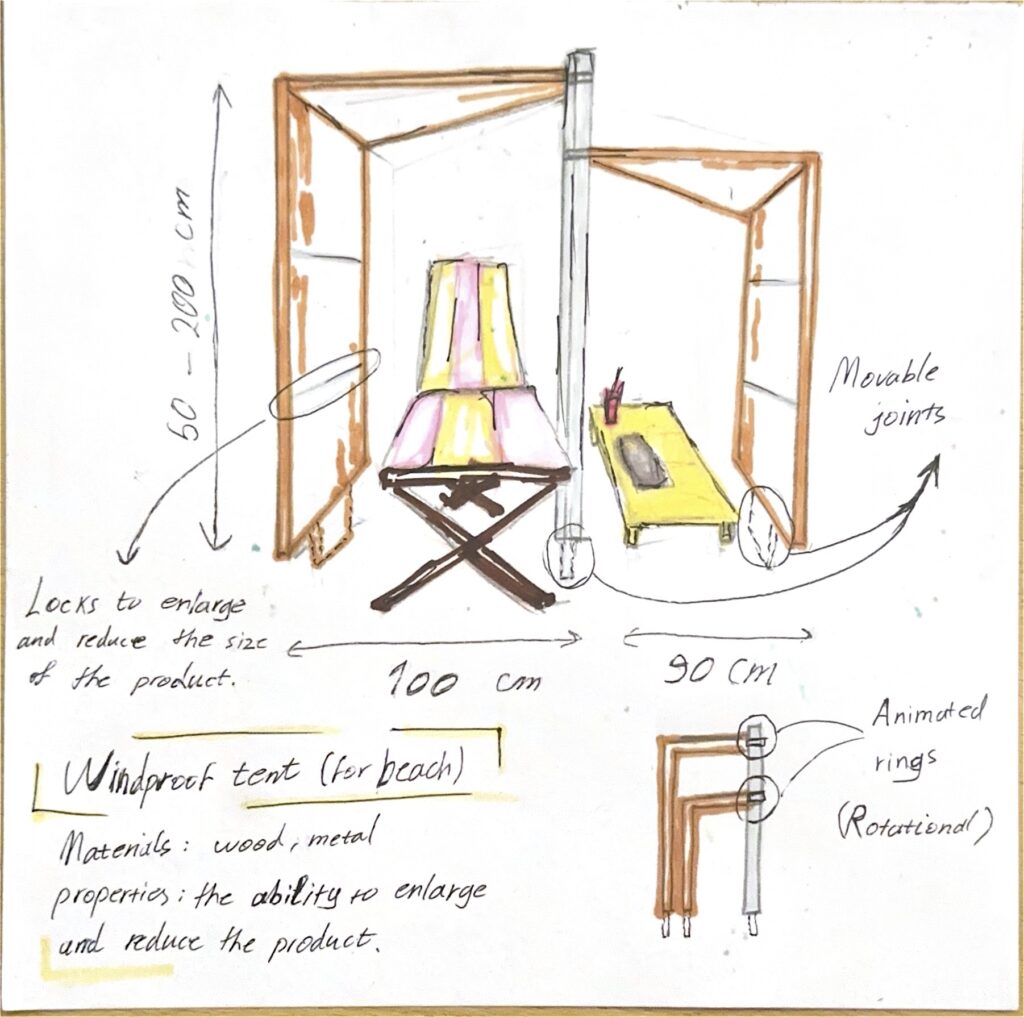 50 - 200 cm
Movable
joints
Locks to enlarge
and reduce the size
of the product.
100 cm
90 cm
Animated
rings
(Rotational)
Windproof tent (for beach)
Materials: wood, metal
properties: the ability to enlarge
and reduce the product.